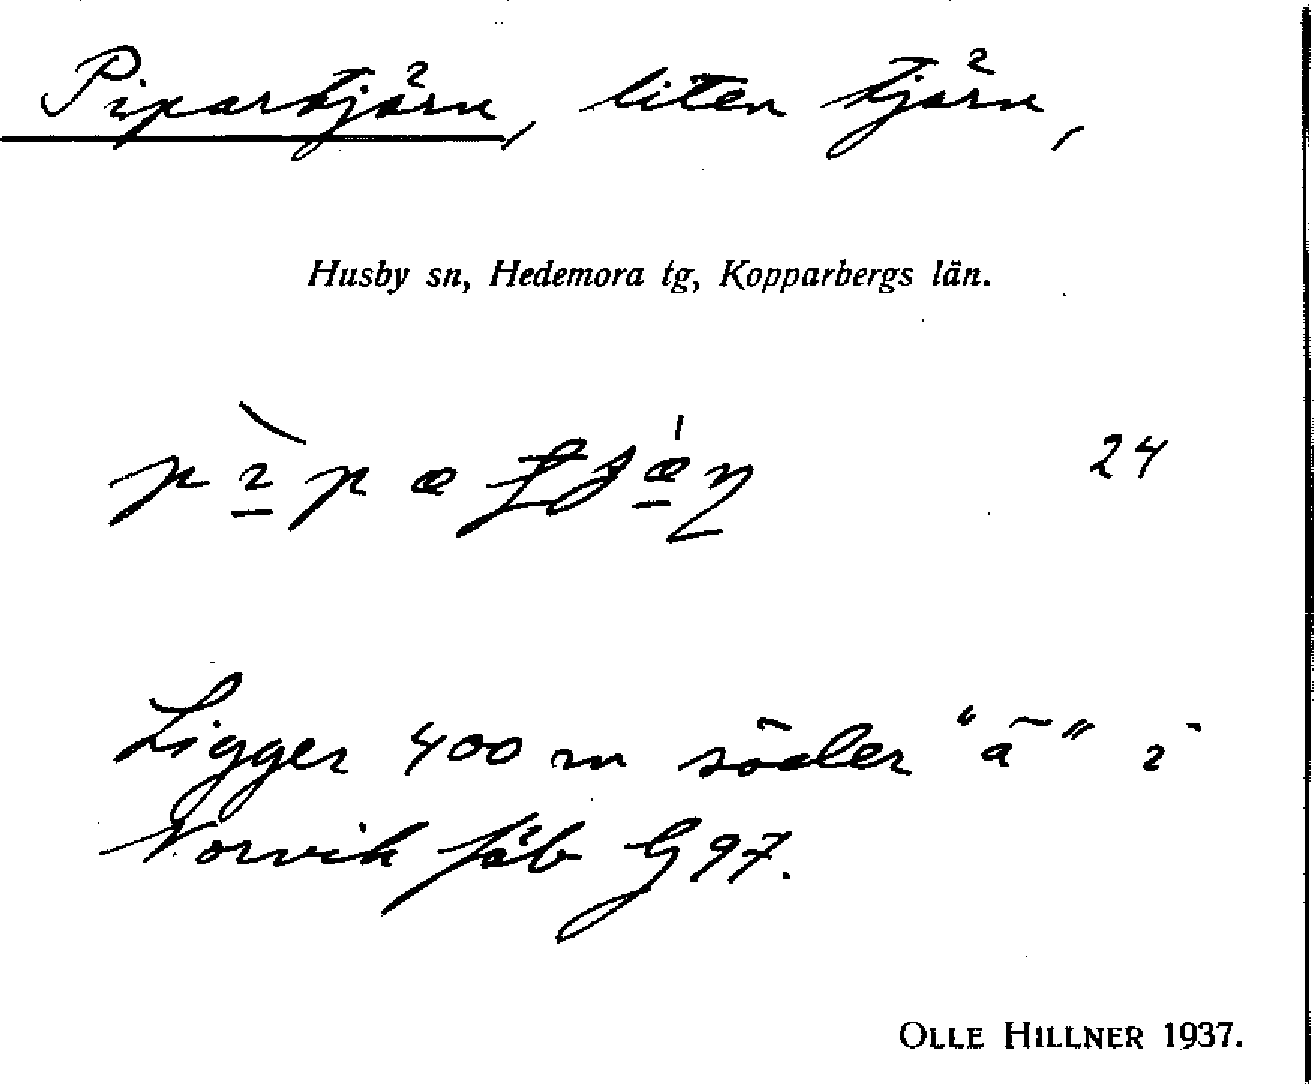 Pipartjärn, liten tjärn,
Husby sn, Hedemora tg, Kopparbergs län.
24
Ligger 400 m söder "a" i
Norvik fäb G 97.
OLLE HILLNER 1937.